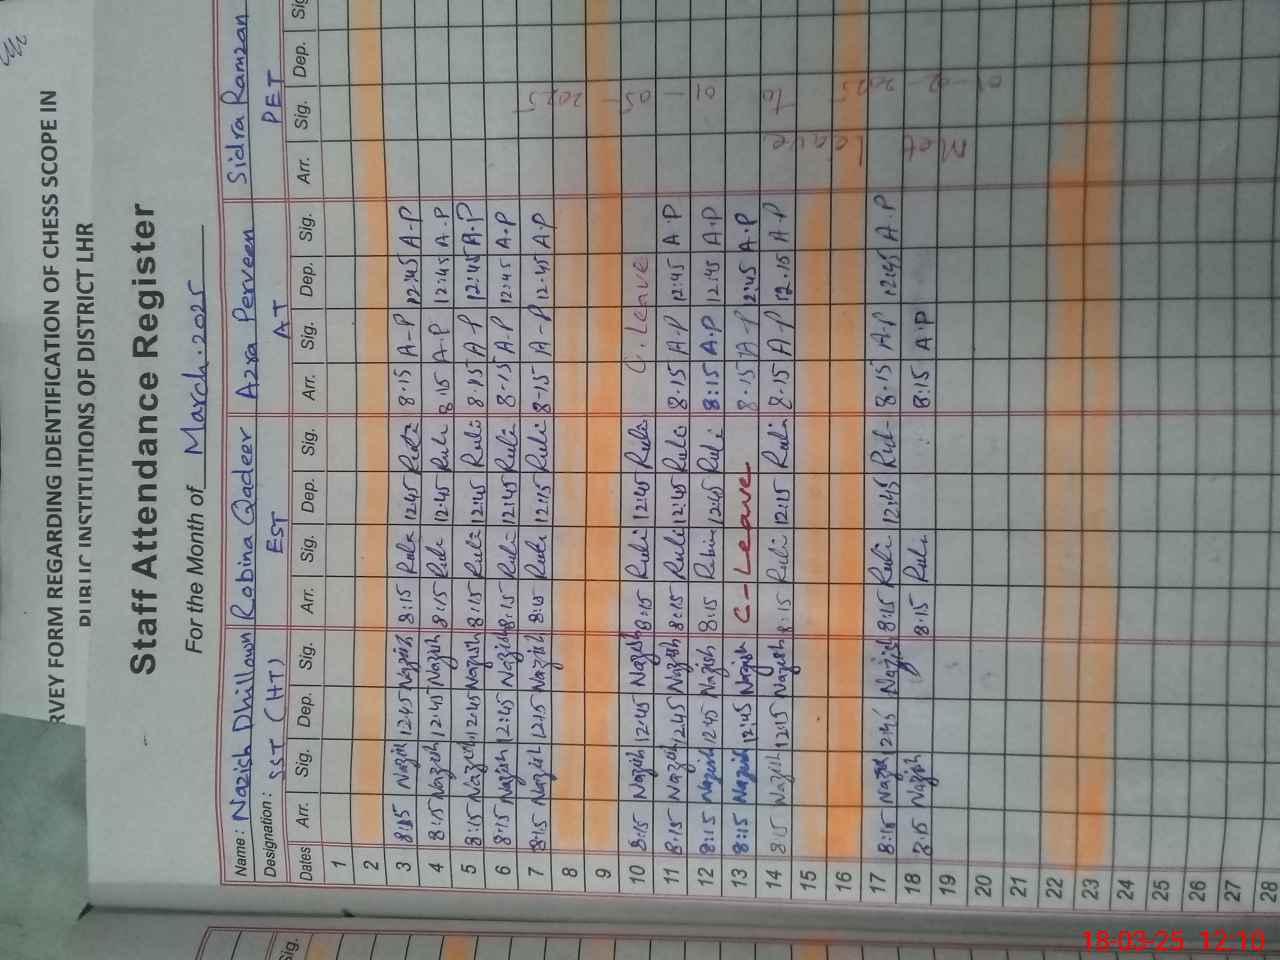 RVEY FORM REGARDING IDENTIFICATION OF CHESS SCOPE IN
PUBLIC INSTITUTIONS OF DISTRICT LHR
Staff Attendance Register
For the Month of March.2025
Name: Nazish Dhillown Robina Qadeer Azra Perveen Sidra Ramzan
Designation: SST (HT) EST AT PET
Dates Arr. Sig. Dep. Sig. Arr. Sig. Dep. Sig. Arr. Sig. Dep. Sig. Arr. Sig. Dep. Sig
1
2
3 8:15 Nazish 12:45 Nazish 8:15 Rubi 12:45 Rubi 8:15 A-P 12:45 A-P
4 8:15 Nazish 12:45 Nazish 8:15 Rubi 12:45 Rubi 8:15 A-P 12:45 A-P
5 8:15 Nazish 12:45 Nazish 8:15 Rubi 12:45 Rubi 8:15 A-P 12:45 A-P
6 8:15 Nazish 12:45 Nazish 8:15 Rubi 12:45 Rubi 8-15 A-P 12:45 A-P
7 8:15 Nazish 12:15 Nazish 8:15 Rubi 12:15 Rubi 8-15 A-P 12-45 A-P
8
9
10 8:15 Nazish 12:45 Nazish 8:15 Rubi 12:45 Rubi C. Leave
11 8:15 Nazish 12:45 Nazish 8:15 Rubi 12:45 Rubi 8-15 A-P 12:45 A-P
12 8:15 Nazish 12:45 Nazish 8:15 Robin 12:45 Rubi 8:15 A.P 12:45 A-P
13 8:15 Nazish 12:45 Nazish C-Leave 8-15 A-P 12:45 A-P
14 8:15 Nazish 12:15 Nazish 8:15 Rubi 12:15 Rubi 8-15 A-P 12-15 A-P
15
16
17 8:15 Nazish 12:45 Nazish 8:15 Rubi 12:45 Rubi 8-15 A-P 12:45 A-P
18 8:15 Nazish 8:15 Rubi 8:15 A.P
19
20
21
22
23
24
25
26
27
28
Mat Leave
01-02-2025
To
01-05-2025
Sig.
18-03-25 12:10